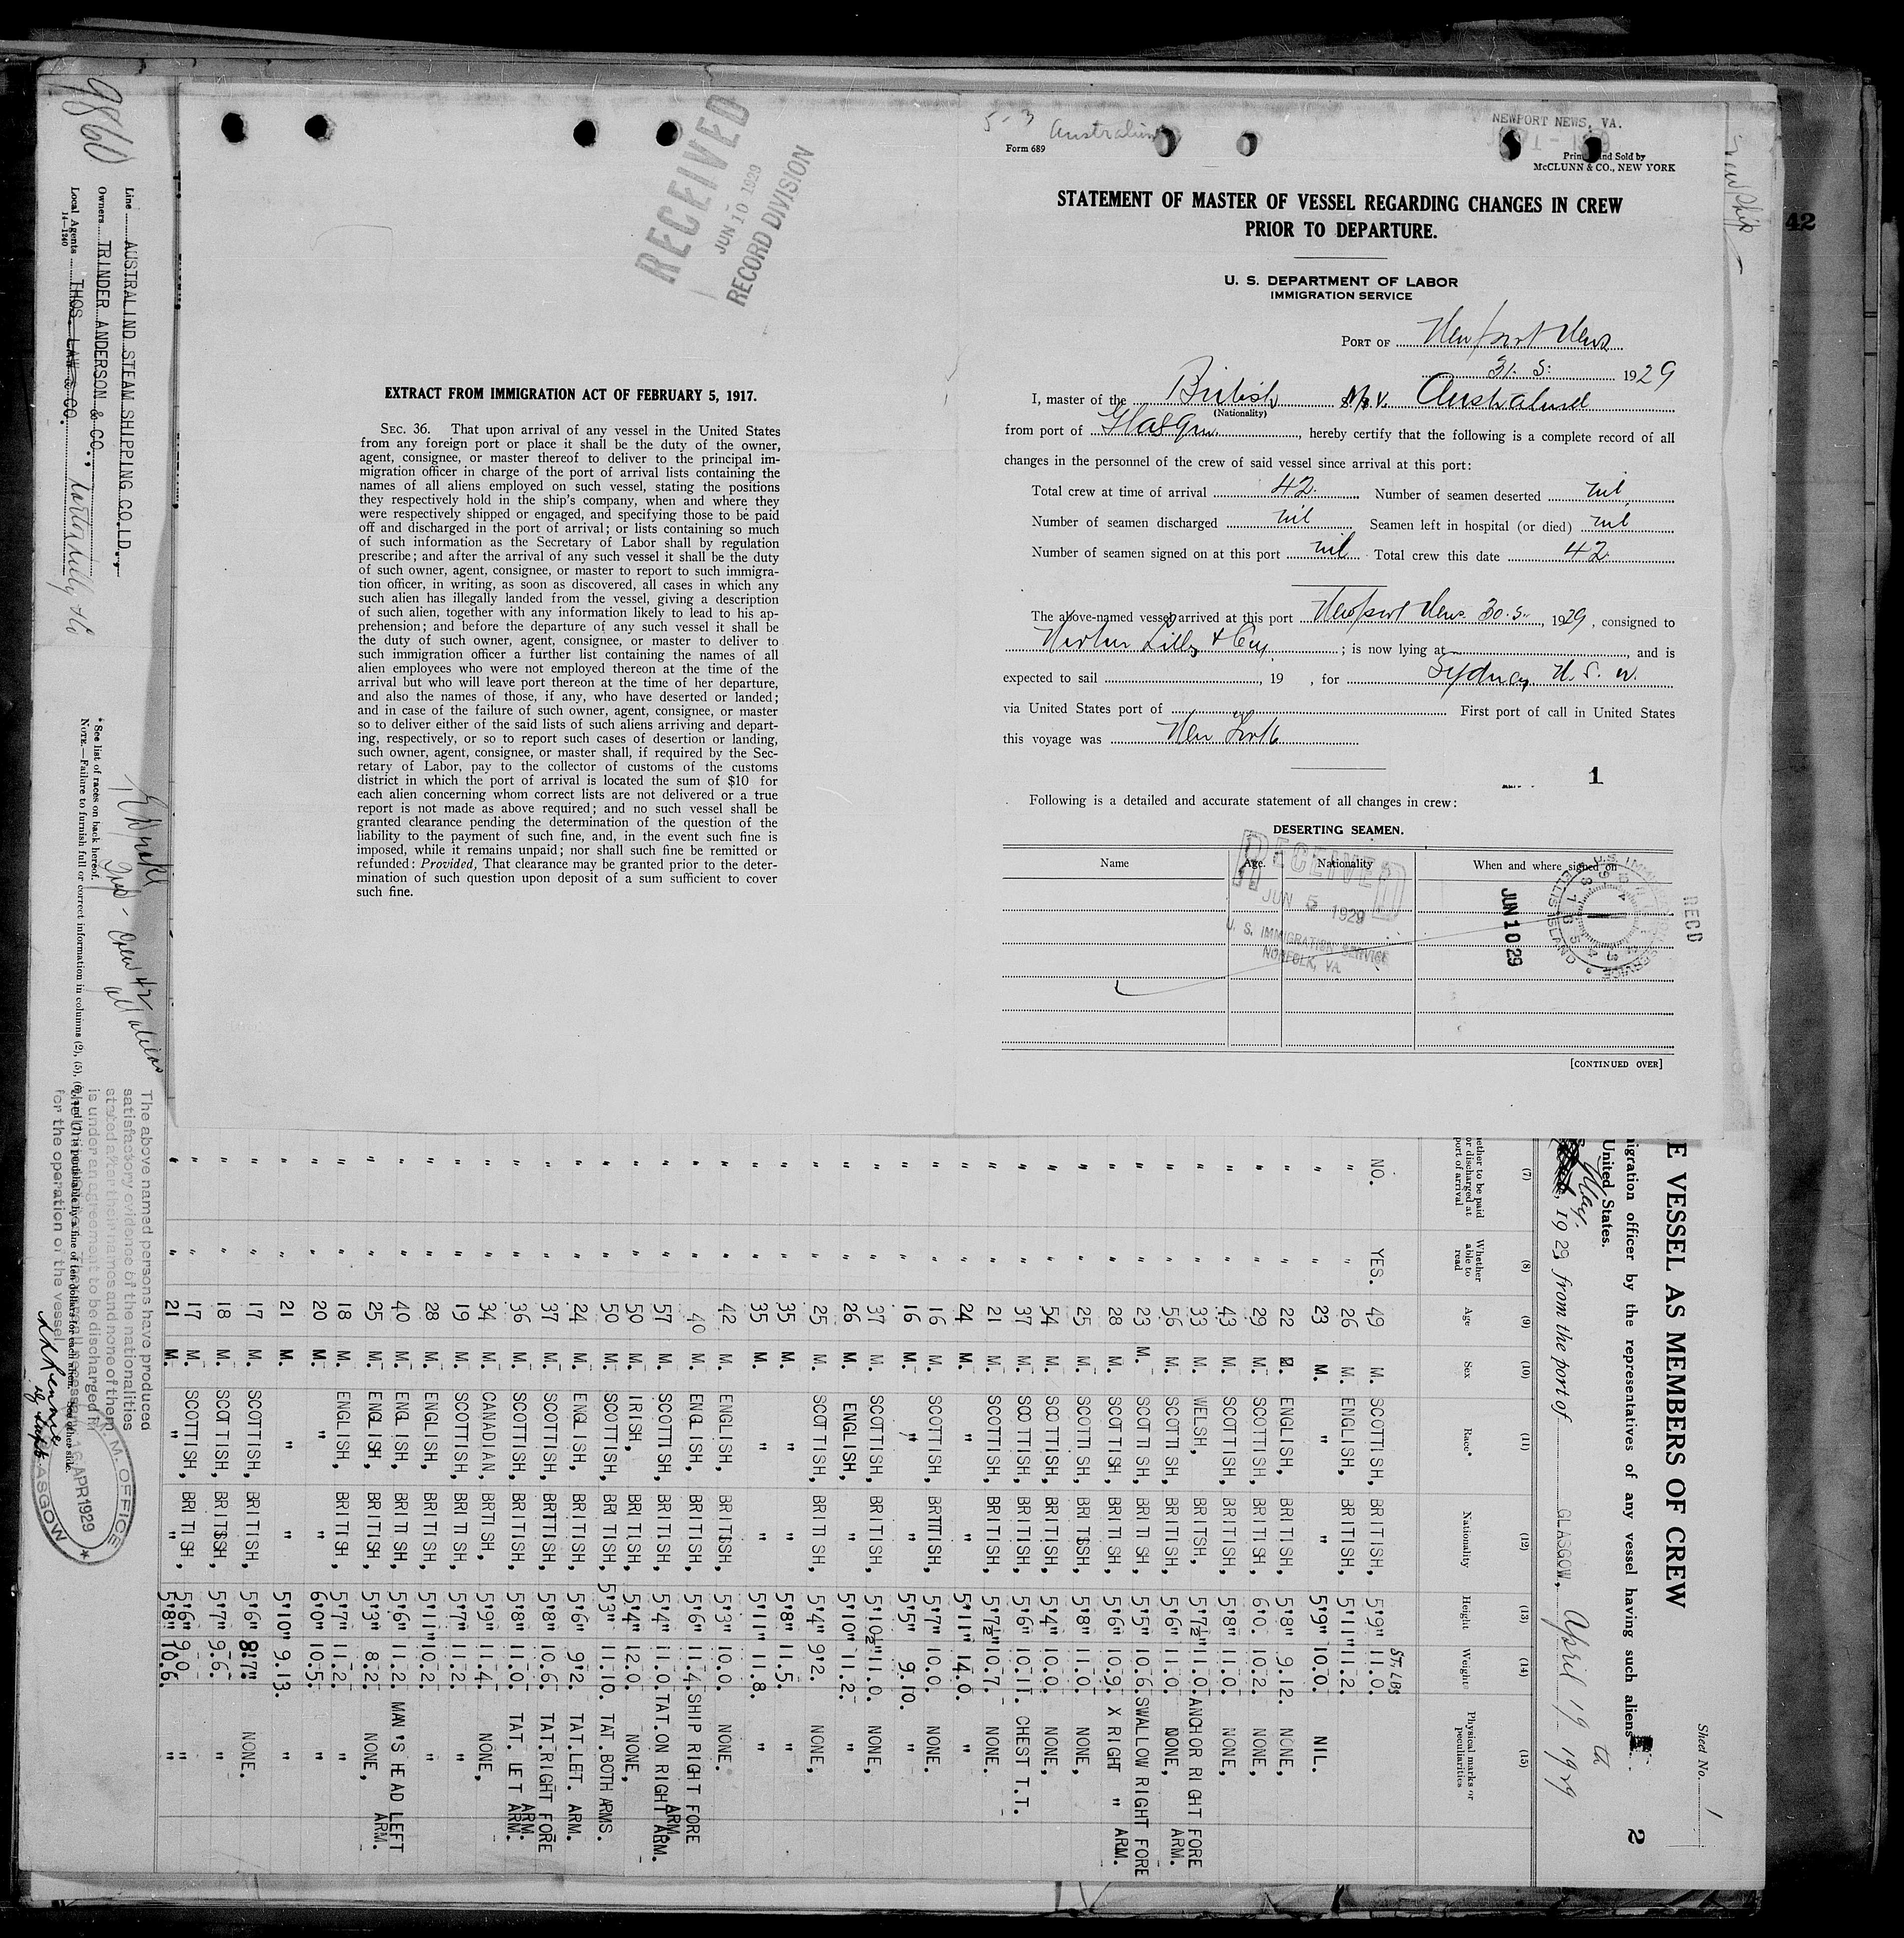 9860
RECEIVED
JUN 10 1929
RECORD DIVISION
EXTRACT FROM IMMIGRATION ACT OF FEBRUARY 5, 1917.
SEC. 36. That upon arrival of any vessel in the United States
from any foreign port or place it shall be the duty of the owner,
agent, consignee, or master thereof to deliver to the principal im-
migration officer in charge of the port of arrival lists containing the
names of all aliens employed on such vessel, stating the positions
they respectively hold in the ship's company, when and where they
were respectively shipped or engaged, and specifying those to be paid
off and discharged in the port of arrival; or lists containing so much
of such information as the Secretary of Labor shall by regulation
prescribe; and after the arrival of any such vessel it shall be the duty
of such owner, agent, consignee, or master to report to such immigra-
tion officer, in writing, as soon as discovered, all cases in which any
such alien has illegally landed from the vessel, giving a description
of such alien, together with any information likely to lead to his ap-
prehension; and before the departure of any such vessel it shall be
the duty of such owner, agent, consignee, or master to deliver to
such immigration officer a further list containing the names of all
alien employees who were not employed thereon at the time of the
arrival but who will leave port thereon at the time of her departure,
and also the names of those, if any, who have deserted or landed;
and in case of the failure of such owner, agent, consignee, or master
so to deliver either of the said lists of such aliens arriving and depart-
ing, respectively, or so to report such cases of desertion or landing,
such owner, agent, consignee, or master shall, if required by the Sec-
retary of Labor, pay to the collector of customs of the customs
district in which the port of arrival is located the sum of $10 for
each alien concerning whom correct lists are not delivered or a true
report is not made as above required; and no such vessel shall be
granted clearance pending the determination of the question of the
liability to the payment of such fine, and, in the event such fine is
imposed, while it remains unpaid; nor shall such fine be remitted or
refunded: Provided, That clearance may be granted prior to the deter-
mination of such question upon deposit of a sum sufficient to cover
such fine.
5-3 Australind
NEWPORT NEWS, VA.
Form 689
Printed and Sold by
McCLUNN & CO., NEW YORK
STATEMENT OF MASTER OF VESSEL REGARDING CHANGES IN CREW
PRIOR TO DEPARTURE.
U. S. DEPARTMENT OF LABOR
IMMIGRATION SERVICE
PORT OF Newport News
31. 5. 1929
I, master of the British M.V. Australind
(Nationality)
from port of Glasgow, hereby certify that the following is a complete record of all
changes in the personnel of the crew of said vessel since arrival at this port:
Total crew at time of arrival 42. Number of seamen deserted nil
Number of seamen discharged nil Seamen left in hospital (or died) nil
Number of seamen signed on at this port nil Total crew this date 42
The above-named vessel arrived at this port Newport News. 30.5. 1929, consigned to
; is now lying at , and is
expected to sail , 19 , for Sydney N. S. W.
via United States port of First port of call in United States
this voyage was New York
1
Following is a detailed and accurate statement of all changes in crew:
DESERTING SEAMEN.
Name Age. Nationality When and where signed on
RECEIVED
JUN 5 1929
U. S. IMMIGRATION SERVICE
NORFOLK, VA.
JUN 10 29
U.S. IMMIGRATION SERVICE
ELLIS ISLAND
RECD
[CONTINUED OVER]
42
Line AUSTRALIND STEAM SHIPPING CO.LD.,
Owners TRINDER ANDERSON & CO.,
Local Agents THOS. LAW & CO.
14—1240
* See list of races on back hereof.
The above named persons have produced
satisfactory evidence of the nationalities
stated after their names and none of them
is under an agreement to be discharged in
for the operation of the vessel
M. M. OFFICE
16 APR 1929
GLASGOW
Sheet No. 1
2
E VESSEL AS MEMBERS OF CREW
migration officer by the representatives of any vessel having such aliens
United States.
May, 1929, from the port of GLASGOW, April 19th 1929
(7) (8) (9) (10) (11) (12) (13) (14) (15)
Whether able to read Age Sex Race* Nationality Height Weight Physical marks or peculiarities
ST. LBS
NO. YES. 49 M. SCOTTISH, BRITISH, 5'9" 11.0.
" " 26 M. ENGLISH, BRITISH, 5'11" 11.2.
" " 23 M. " " 5'9" 10.0. NIL.
" " 22 M. ENGLISH, BRITISH, 5'8" 9.12. NONE,
" " 29 M. SCOTTISH, BRITISH, 6'0. 10.2. NONE,
" " 43 M. SCOTTISH, BRITISH, 5'8" 11.0. NONE,
" " 33 M. WELSH, BRITISH, 5'7½" 11.0. ANCHOR RIGHT FORE ARM.
" " 56 M. SCOTTISH, BRITISH, 5'6" 11.0. NONE,
" " 23 M. SCOTTISH, BRITISH, 5'5" 10.6. SWALLOW RIGHT FORE
" " 28 M. SCOTTISH, BRITISH, 5'6" 10.9. X RIGHT " ARM.
" " 25 M. SCOTTISH, BRITISH, 5'8" 11.0. NONE,
" " 54 M. SCOTTISH, BRITISH, 5'4" 10.0. NONE,
" " 37 M. SCOTTISH, BRITISH, 5'6" 10.11. CHEST T.T.
" " 21 M. SCOTTISH, BRITISH, 5'7½" 10.7. NONE.
" " 24 M. " " 5'11" 14.0. "
" " 16 M. SCOTTISH, BRITISH, 5'7" 10.0. NONE.
" " 16 M. " " 5'5" 9.10. "
" " 37 M. SCOTTISH, BRITISH, 5'10½" 11.0. NONE,
" " 26 M. ENGLISH, " 5'10" 11.2. "
" " 25 M. SCOTTISH, BRITISH, 5'4" 9'2. NONE,
" " 35 M. " " 5'8" 11.5. "
" " 35 M. " " 5'11" 11.8. "
" " 42 M. ENGLISH, BRITISH, 5'3" 10.0. NONE.
" " 40 M. ENGLISH, BRITISH, 5'6" 11.4. SHIP RIGHT FORE ARM.
" " 57 M. SCOTTISH, BRITISH, 5'4" 11.0. TAT. ON RIGHT ARM.
" " 50 M. IRISH, BRITISH, 5'4" 12.0. NONE,
" " 50 M. SCOTTISH, BRITISH, 5'3" 11.10. TAT. BOTH ARMS.
" " 24 M. ENGLISH, BRITISH, 5'6" 9'2. TAT. LET. ARM.
" " 37 M. SCOTTISH, BRITISH, 5'8" 10.6. TAT. RIGHT FORE ARM.
" " 36 M. SCOTTISH, BRITISH, 5'8" 11.0. TAT. LET ARM.
" " 34 M. CANADIAN, BRITISH, 5'9" 11.4. NONE,
" " 19 M. SCOTTISH, BRITISH, 5'7" 11.2. "
" " 28 M. ENGLISH, BRITISH, 5'11" 10.2. "
" " 40 M. ENGLISH, BRITISH, 5'6" 11.2. MAN'S HEAD LEFT ARM.
" " 25 M. ENGLISH, BRITISH, 5'3" 8.2. NONE,
" " 18 M. ENGLISH, BRITISH, 5'7" 11.2. "
" " 20 M. " " 6'0" 10.5. "
" " 21 M. " " 5'10" 9.13. "
" " 17 M. SCOTTISH, BRITISH, 5'6" 8'7" NONE.
" " 18 M. SCOTTISH, BRITISH, 5'7" 9.6. "
" " 17 M. SCOTTISH, BRITISH, 5'6" 9.0. "
" " 21 M. " " 5'8" 10.6. "